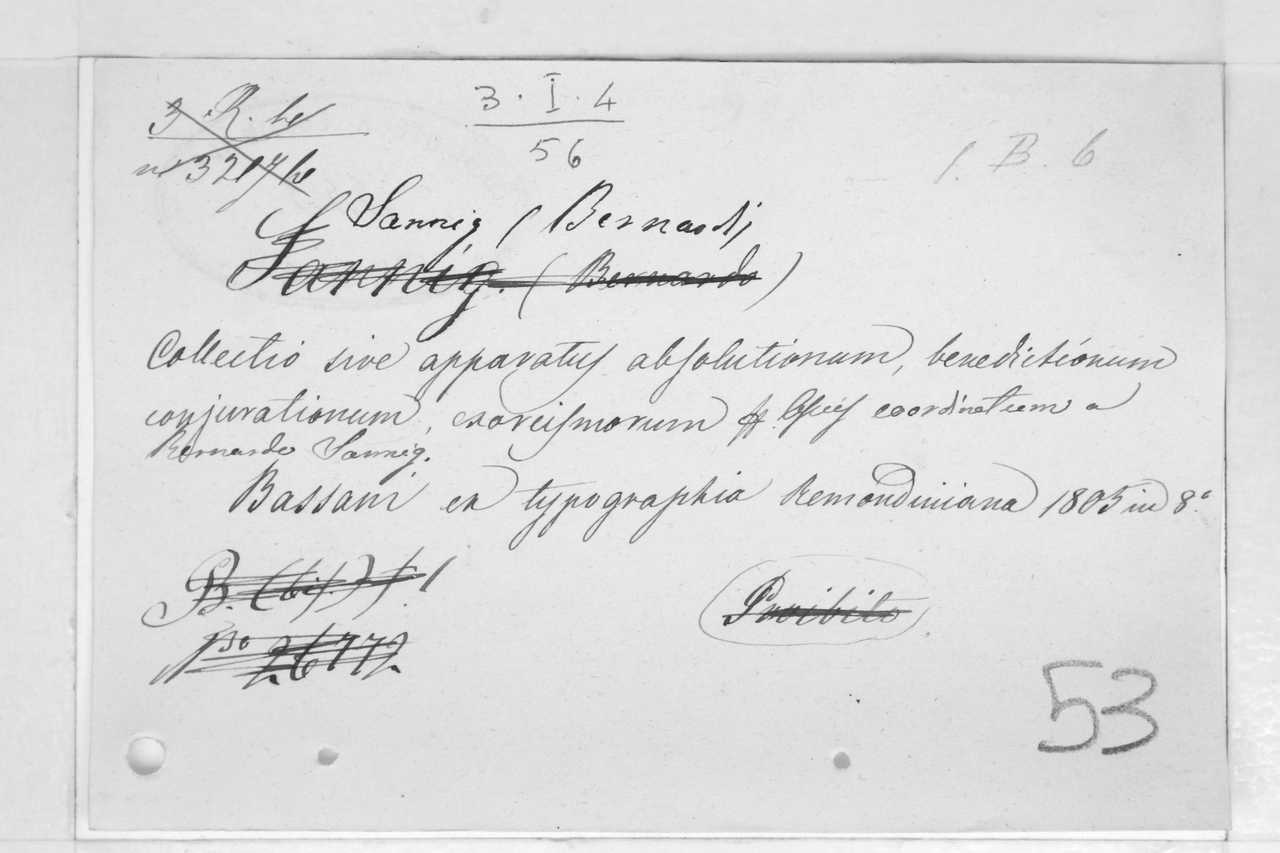 3 R.
3 · I · 4
56
1. B. 6
3217
Sannig (Bernard)
Sannig. (Bernardo)
Collectio sive apparatus absolutionum, benedictionum
conjurationum, exorcismorum coordinatum a
Bernardo Sannig.
Bassani ex typographia Remondiniana 1805 in 8º
B.
26772
Proibito
53